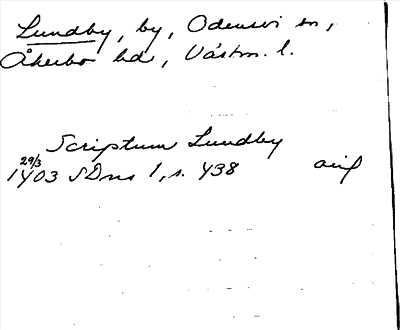 Lundby, by, Odensvi sn,
Åkerbo hd, Västm. l.
Scriptum Lundby
29/3
1403 SDns 1, s. 438 avs